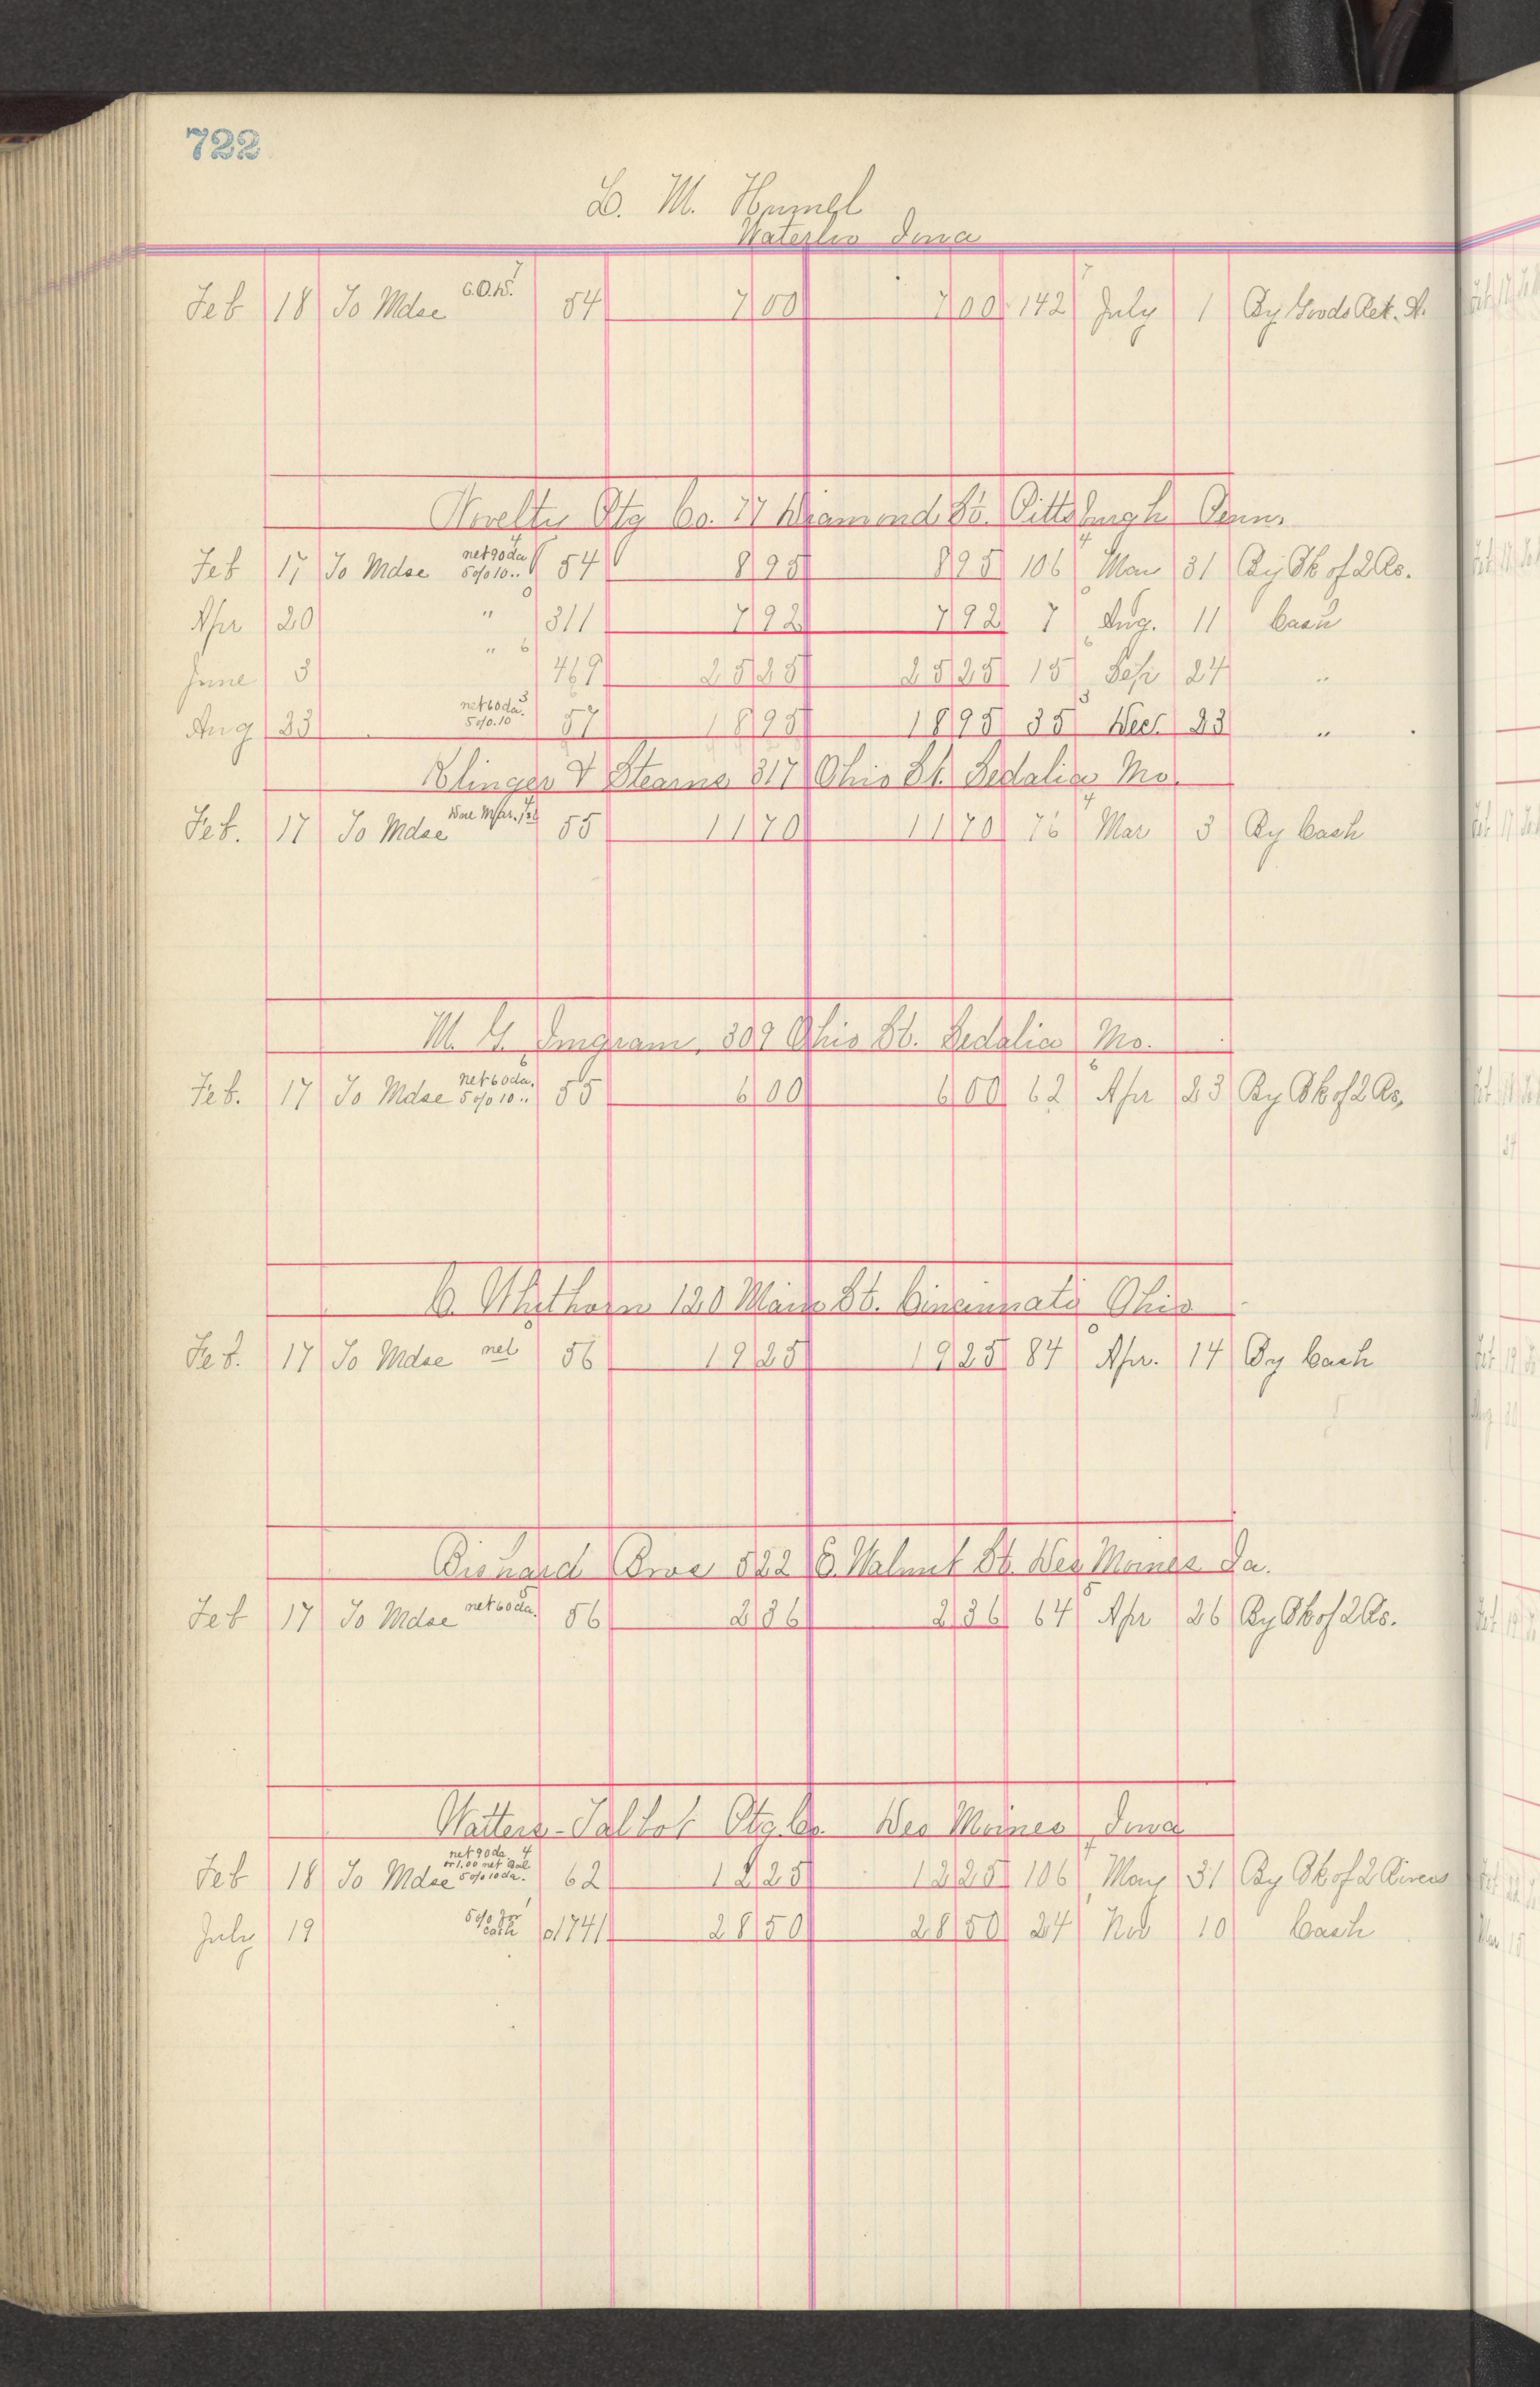 722
L. M. Hummel
Waterloo Iowa
Feb 18 To Mdse C.O.D. 54 7 00 7 00 142 July 1 By Goods Ret. A.
Novelty Ptg Co. 77 Diamond St. Pittsburgh Penn.
Feb 17 To Mdse net 90 da 5 o/o 10 .. 54 8 95 8 95 106 May 31 By Bk of 2 Rs.
Apr 20 " 311 7 92 7 92 7 Aug. 11 Cash
June 3 " 469 25 25 25 25 15 Sep 24 "
Aug 23 net 60 da. 5 o/o 10 57 18 95 18 95 35 Dec. 23 "
Klinger & Stearns 317 Ohio St. Sedalia Mo.
Feb. 17 To Mdse Due Mar. 1st 55 11 70 11 70 76 Mar 3 By Cash
M. G. Imgram, 309 Ohio St. Sedalia Mo.
Feb. 17 To Mdse net 60 da. 5 o/o 10 .. 55 6 00 6 00 62 Apr 23 By Bk of 2 Rs,
120 Main St. Cincinnati Ohio
Feb. 17 To Mdse net 56 19 25 19 25 84 Apr. 14 By Cash
Bros 522 E. Walnut St. Des Moines Ia.
Feb 17 To Mdse net 60 da. 56 2 36 2 36 64 Apr 26 By Bk of 2 Rs.
Watters-Talbot Ptg. Co. Des Moines Iowa
Feb 18 To Mdse net 90 da. or 1.00 net 5 o/o 10 da. 62 12 25 12 25 106 May 31 By Bk of 2
July 19 5 o/o for cash 741 28 50 28 50 24 Nov 10 Cash